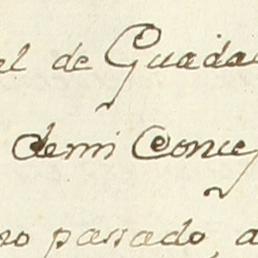 el de Guada
demi Conce
ro passado, a